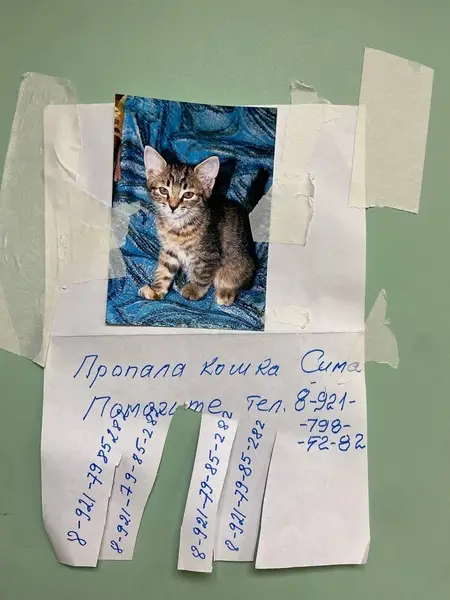 Пропала кошка Сима
Помогите тел. 8-921-
-798-
-52-82
8-921-79-85-282
8-921-79-85-282
8-921-79-85-282
8-921-79-85-282